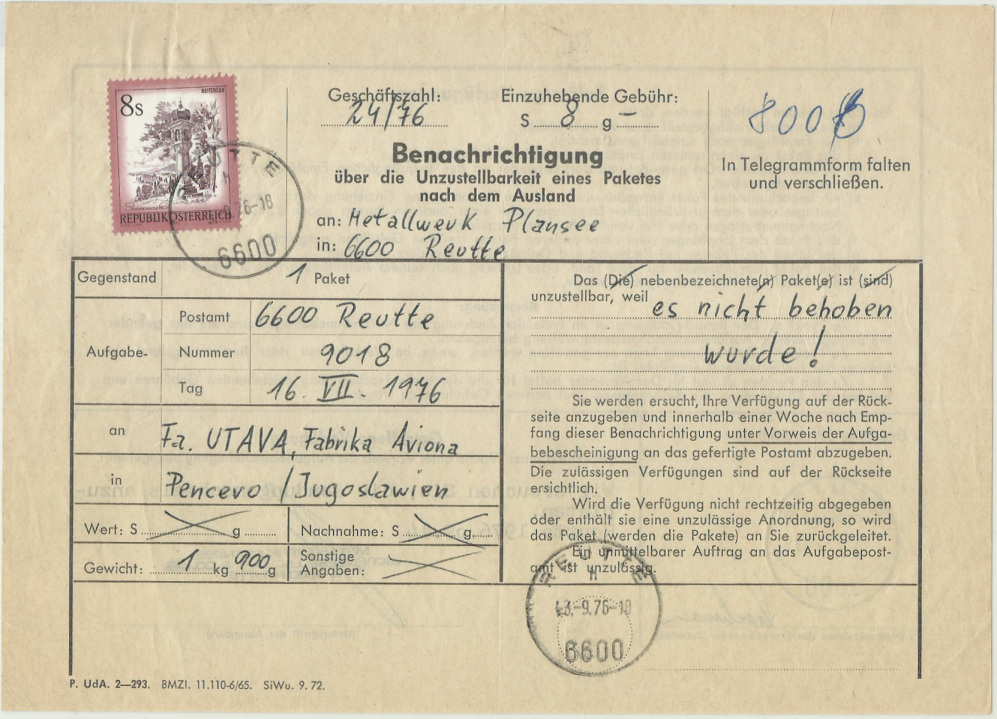 8s
REITEREGG
REPUBLIK ÖSTERREICH
REUTTE
6600
Geschäftszahl:
24/76
Einzuhebende Gebühr:
S 8 g –
8006
In Telegrammform falten
und verschließen.
Benachrichtigung
über die Unzustellbarkeit eines Paketes
nach dem Ausland
an: Metallwerk Plansee
in: 6600 Reutte
Gegenstand 1 Paket
Aufgabe-
Postamt 6600 Reutte
Nummer 9018
Tag 16. VII. 1976
an Fa. UTAVA, Fabrika Aviona
in Pencevo / Jugoslawien
Wert: S g Nachnahme: S g
Gewicht: 1 kg 900 g Sonstige
Angaben:
Das (Die) nebenbezeichnete(n) Paket(e) ist (sind)
unzustellbar, weil es nicht behoben
wurde!
Sie werden ersucht, Ihre Verfügung auf der Rück-
seite anzugeben und innerhalb einer Woche nach Emp-
fang dieser Benachrichtigung unter Vorweis der Aufga-
bebescheinigung an das gefertigte Postamt abzugeben.
Die zulässigen Verfügungen sind auf der Rückseite
ersichtlich.
Wird die Verfügung nicht rechtzeitig abgegeben
oder enthält sie eine unzulässige Anordnung, so wird
das Paket (werden die Pakete) an Sie zurückgeleitet.
Ein unmittelbarer Auftrag an das Aufgabepost-
amt ist unzulässig.
REUTTE
h
-9.76-18
6600
P. UdA. 2—293. BMZl. 11.110-6/65. SiWu. 9. 72.